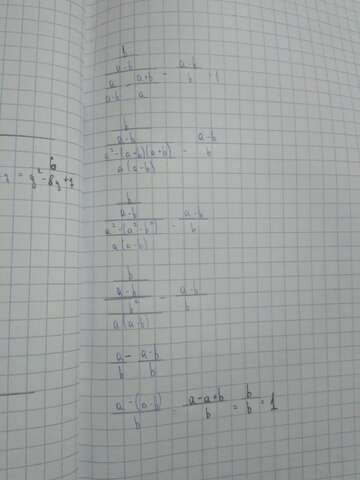 b
a-b
a/(a-b) - (a+b)/a - (a-b)/b
b/(a-b)
(a²-(a-b)(a+b))/(a(a-b)) - (a-b)/b
b/(a-b)
(a²-(a²-b²))/(a(a-b)) - (a-b)/b
b/(a-b)
b²/(a(a-b)) - (a-b)/b
a/b - (a-b)/b
(a-(a-b))/b = (a-a+b)/b = b/b = 1